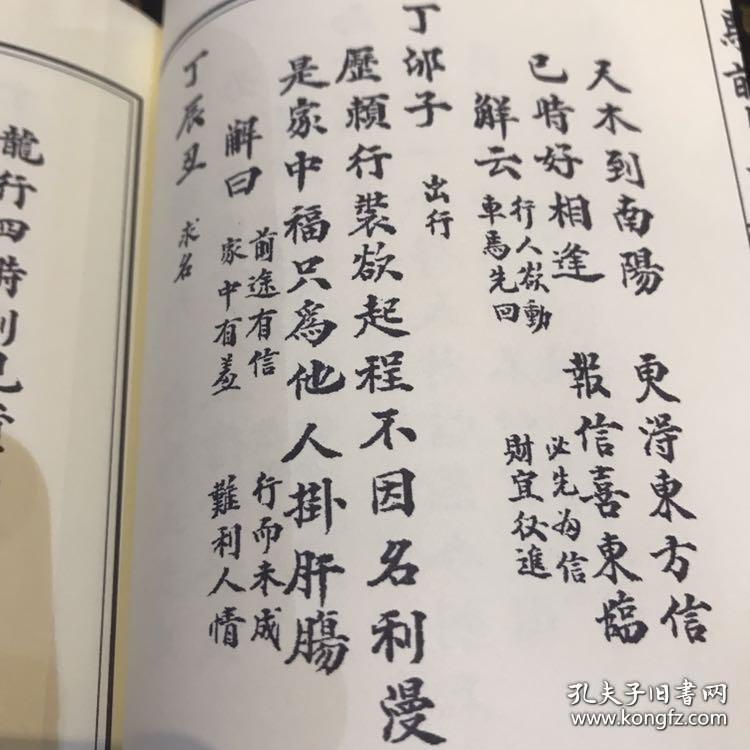 天木到南陽　更淂東方信
巳時好相逢　報信喜東臨
解云　行人欲動　必先為信
車馬先回　財宜役進
丁卯子　出行
歷頼行裝欲起程不因名利漫
是家中福只爲他人掛肝腸
解曰　前途有信　行而未成
家中有羞　難利人情
丁辰丑　求名
龍行四時
孔夫子旧书网
www.kongfz.com